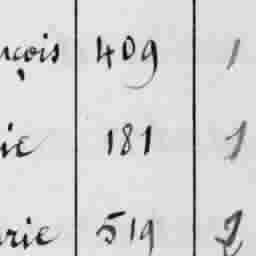 nçois 409 1
ie 181 1
rie 519 2